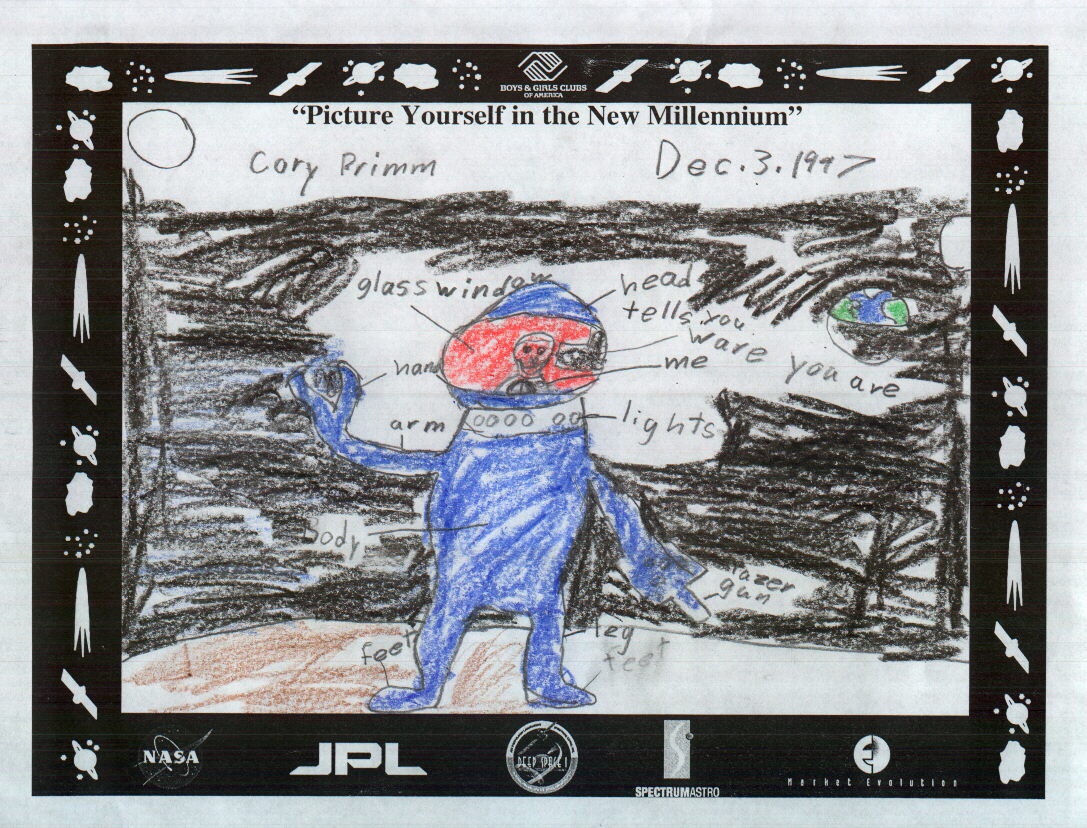 BOYS & GIRLS CLUBS
OF AMERICA
“Picture Yourself in the New Millennium”
Cory Primm
Dec. 3. 1997
glass window
head
tells you
ware you are
hand
me
arm
lights
Body
razer
gun
feet
leg
feet
NASA
JPL
DEEP SPACE 1
SPECTRUMASTRO
Market Evolution